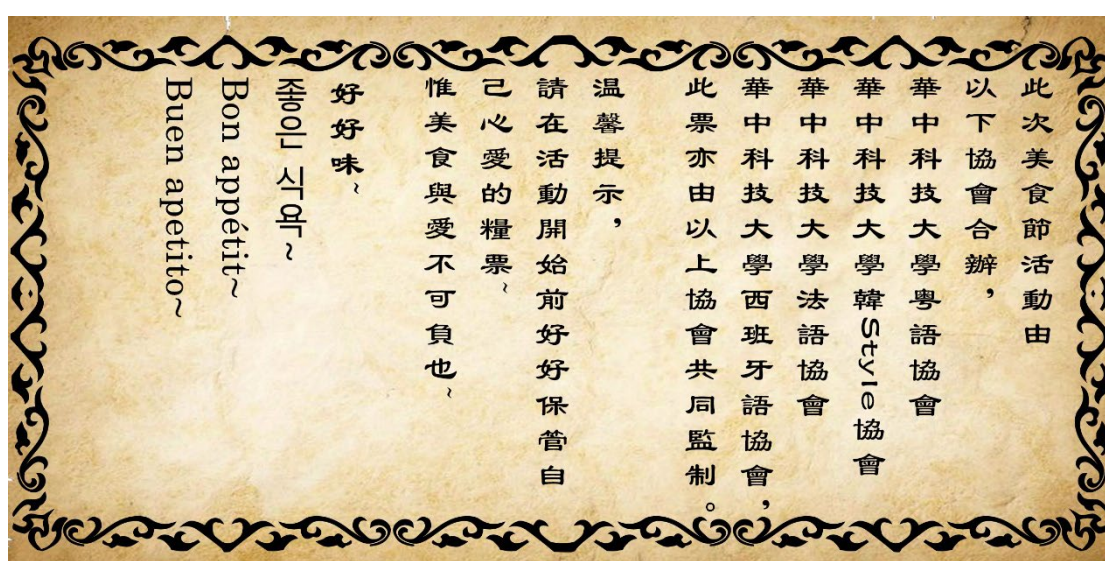 此次美食節活動由
以下協會合辦，
華中科技大學粵語協會
華中科技大學韓Style協會
華中科技大學法語協會
華中科技大學西班牙語協會，
此票亦由以上協會共同監制。
温馨提示，
請在活動開始前好好保管自
己心愛的糧票~
惟美食與愛不可負也~
好好味~
좋은 식욕~
Bon appétit~
Buen apetito~